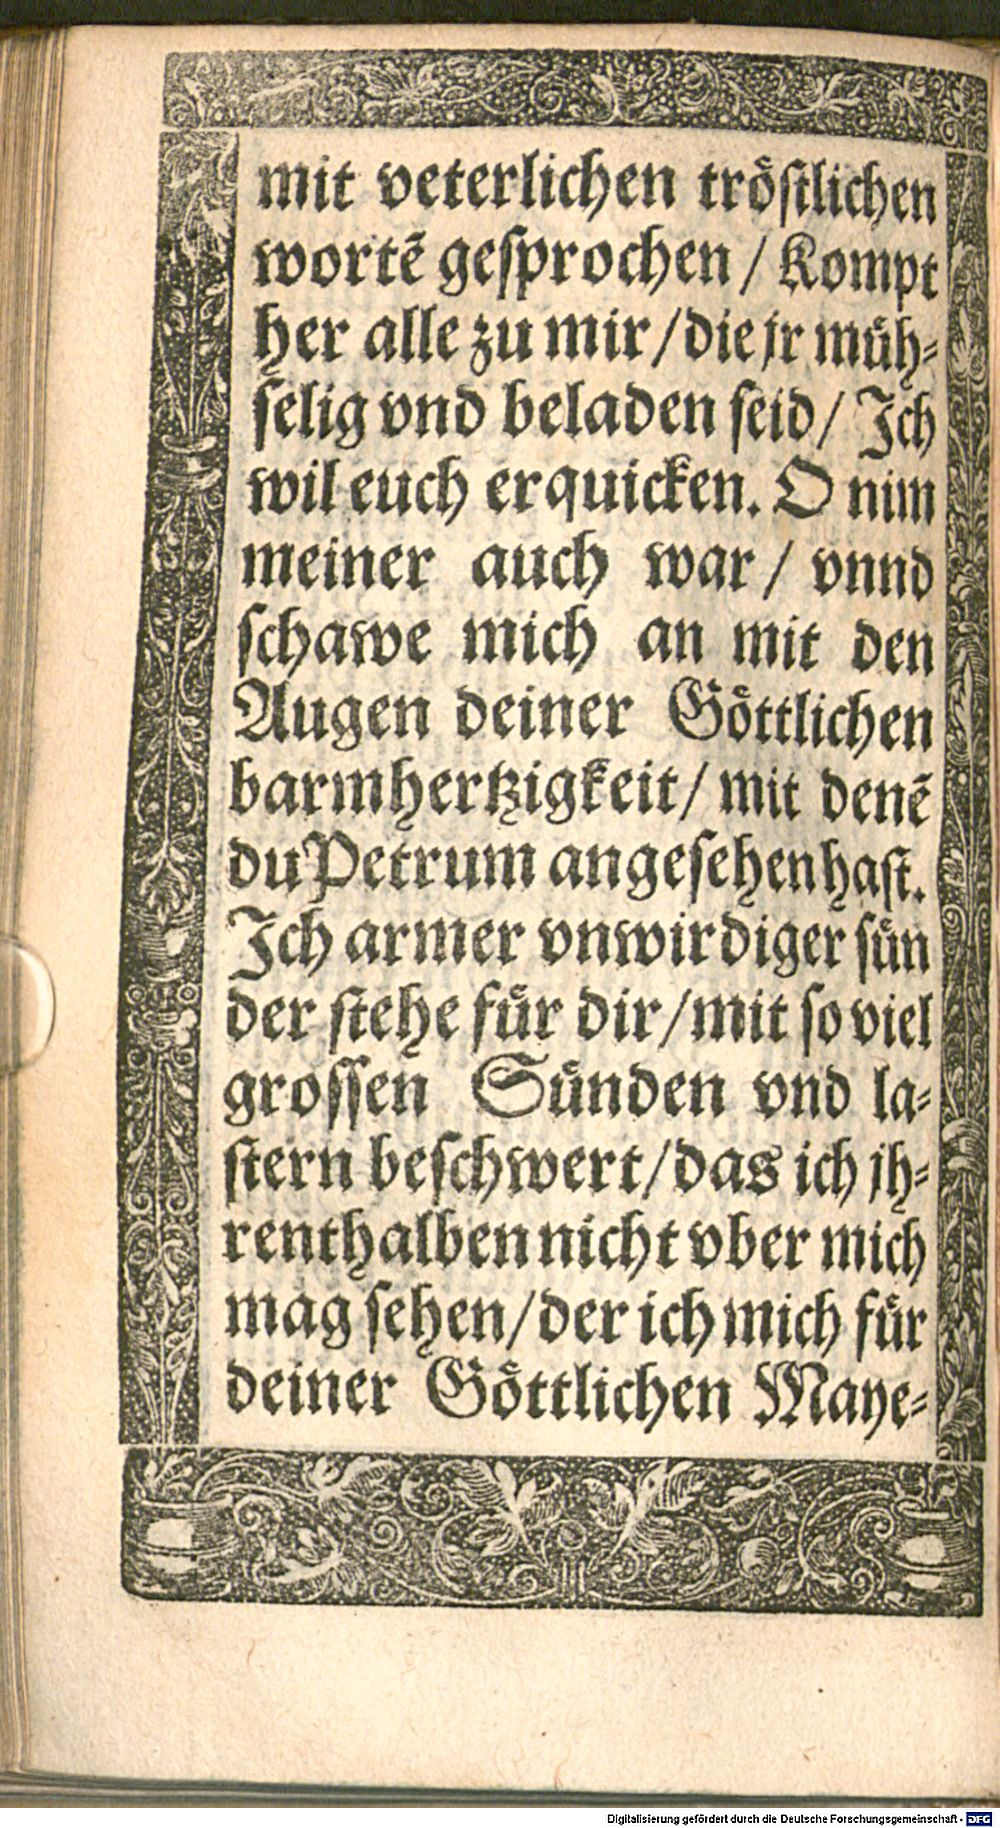 mit veterlichen tröstlichen
wortẽ gesprochen / Kompt
her alle zu mir / die jr müh⸗
selig vnd beladen seid / Ich
wil euch erquicken. O nim
meiner auch war / vnnd
schawe mich an mit den
Augen deiner Göttlichen
barmhertzigkeit / mit denẽ
du Petrum angesehen hast.
Ich armer vnwirdiger sün
der stehe für dir / mit so viel
grossen Sünden vnd la⸗
stern beschwert / das ich jh⸗
renthalben nicht vber mich
mag sehen / der ich mich für
deiner Göttlichen Maye⸗
Digitalisierung gefördert durch die Deutsche Forschungsgemeinschaft - DFG